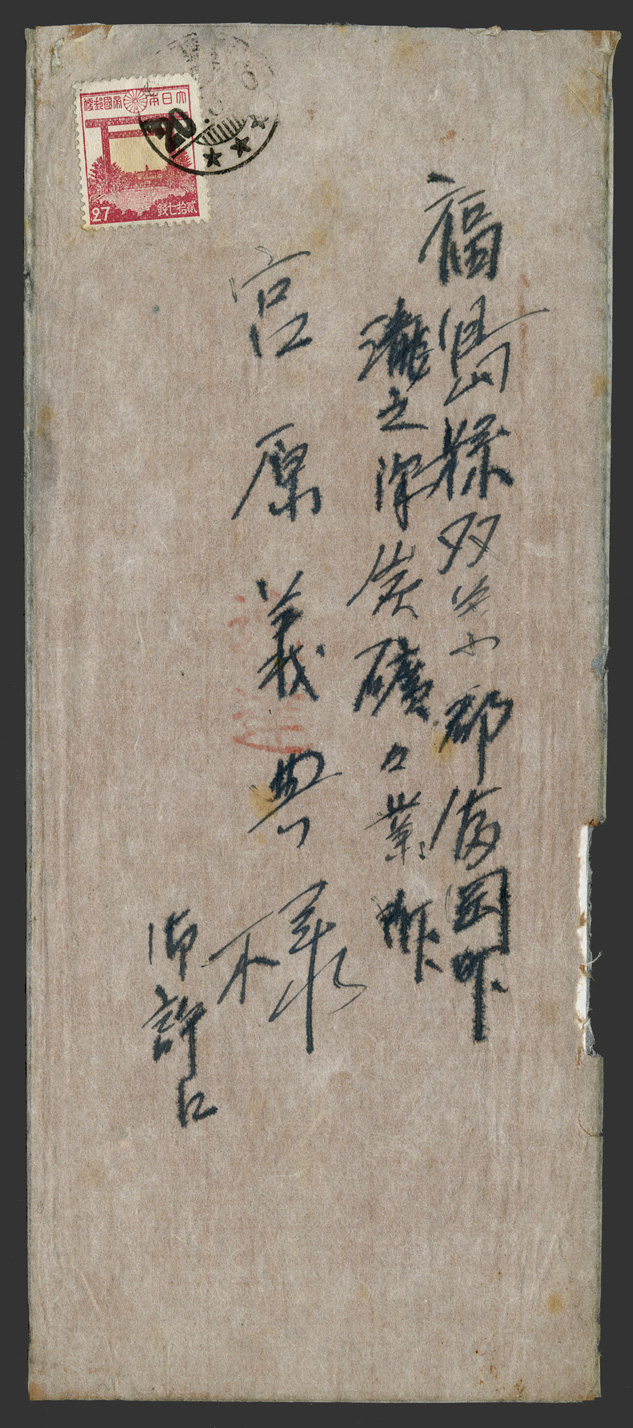 福島縣双葉郡富岡町
瀧之澤炭礦口業所
宮原義典様
御許に
大日本帝國郵便
27
貳拾七錢
20